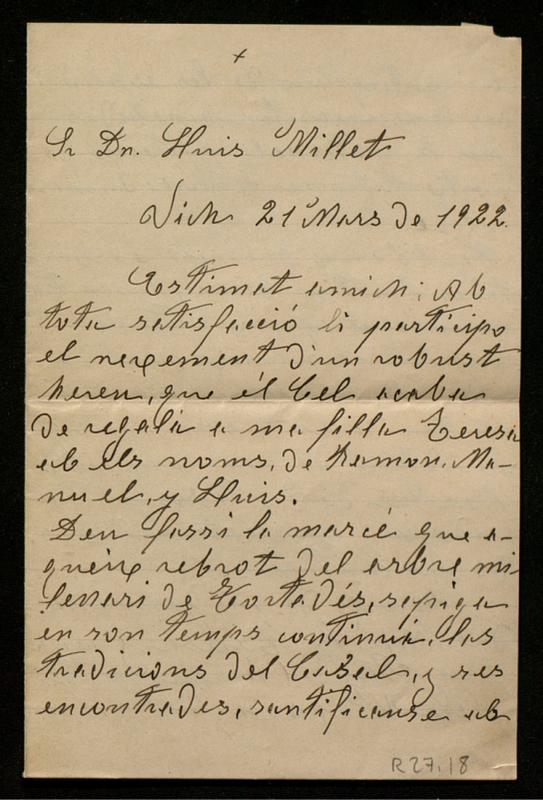 +
Sr Dn. Lluis Millet
Vich 21 Mars de 1922.
Estimat amich: Ab
tota satisfacció li participo
el nexement d'un robust
hereu, que él Cel acaba
de regalá a ma filla Teresa
ab els noms, de Ramon, Ma-
nuel, y Lluis.
Deu fassi la marcé que a-
queix rebrot del arbre mi-
lenari de Tortadés, sapiga
en son temps continuá, las
tradicions del Casal, y ses
encontrades, santificanse ab
R27.18